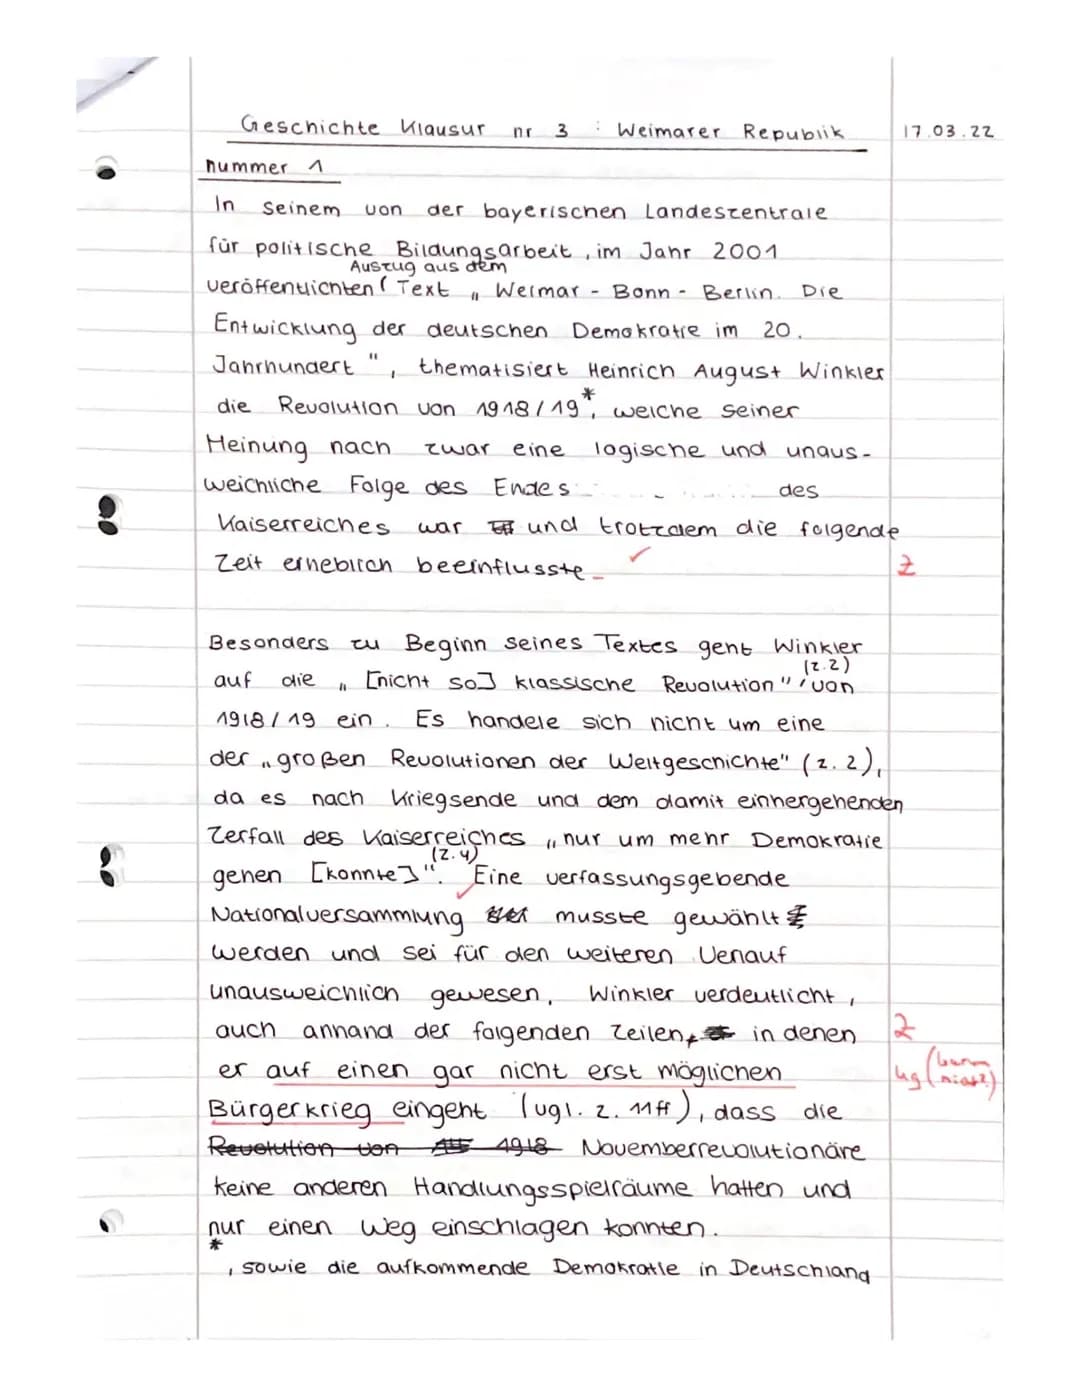 Geschichte Klausur nr 3 : Weimarer Republik 17.03.22
nummer 1
In seinem von der bayerischen Landeszentrale
für politische Bildungsarbeit, im Jahr 2001
Auszug aus dem
veröffentlichten ( Text „ Weimar - Bonn - Berlin. Die
Entwicklung der deutschen Demokratie im 20.
Jahrhundert ", thematisiert Heinrich August Winkler
die Revolution von 1918/19*, welche seiner
Meinung nach zwar eine logische und unaus-
weichliche Folge des Endes des
Kaiserreiches war und trotzdem die folgende
Zeit erheblich beeinflusste Z
Besonders zu Beginn seines Textes geht Winkler
(z.2)
auf die „ [nicht so] klassische Revolution" , von
1918/19 ein. Es handele sich nicht um eine
der „großen Revolutionen der Weltgeschichte" (z. 2),
da es nach Kriegsende und dem damit einhergehenden
Zerfall des Kaiserreiches „nur um mehr Demokratie
(z.4)
gehen [konnte]". Eine verfassungsgebende
Nationalversammlung musste gewählt
werden und sei für den weiteren Verlauf
unausweichlich gewesen. Winkler verdeutlicht,
auch anhand der folgenden Zeilen, in denen Z
er auf einen gar nicht erst möglichen ug
Bürgerkrieg eingeht (vgl. z. 11ff), dass die
Revolution von 1918 Novemberrevolutionäre
keine anderen Handlungsspielräume hatten und
nur einen Weg einschlagen konnten.
*
, sowie die aufkommende Demokratie in Deutschland